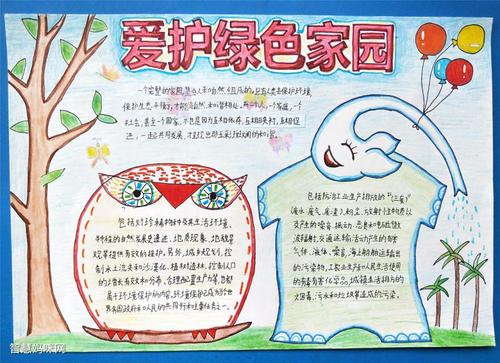 爱护绿色家园
一个完整的家园,是由人和自然组成的,只有人类去保护环境,
保护生态平衡,才能与自然和谐相处。
一个家庭,一个
社会,甚至一个国家,
互相依存,互相
进,一起共同发展,才
包括对珍稀物种及其生活环境、
特殊的自然发展史遗迹、地质现象、地貌景
观等提供有效的保护。另外,城乡规划,控
制水土流失和沙漠化、植树造林、控制人口
的增长和分布、合理配置生产力等,都
属于环境保护的内容。环境保护已成为当今世
界各国政府和人民的共同行动和主要任务之一。
包括防治工业生产排放的“三废”
(废水、废气、废渣)、粉尘、放射性物质以
及产生的噪音、振动、恶臭和电磁微
波辐射,交通运输活动产生的有害
气体、液体、噪音,海上船舶运输排出
的污染物,工农业生产和人民生活使用
的有毒有害化学品,城镇生活排放的
烟尘、污水和垃圾等造成的污染。
智慧妈咪网